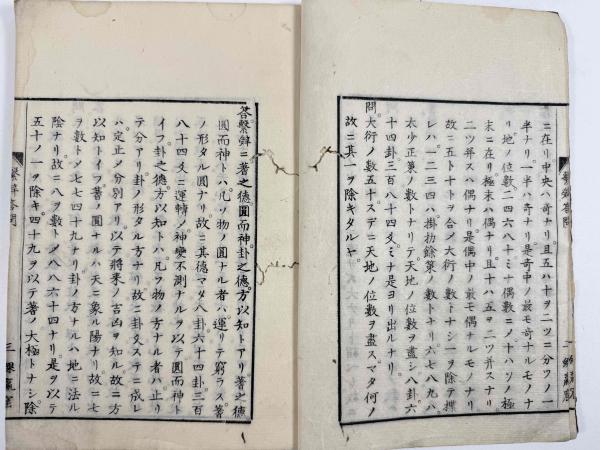 ニ在リ中央ハ奇ナリ且五ハ十ヲ二ツニ分ツノ一
半ナリ一半ハ奇ナリ是奇中ノ最モ奇ナルモノナ
リ地ノ位數二四六八十ミナ偶數ニノ十ハソノ極
末ニ在リ極末ハ偶ナリ且十ハ五ヲ二ツ并スナリ
二ツ并スハ偶ナリ是偶中ノ最モ偶ナルモノナリ
故ニ五ト十トヲ合ノ大衍ノ數トナシ一ヲ除テ揲
レハ一二三四ハ掛扐餘策ノ數トナリ六七八九ハ
太少正策ノ數トナリテ天地ノ位數ヲ盡シ八卦六
十四卦三百八十四爻ミナ是ヨリ出ルナリ
問大衍ノ數五十スデニ天地ノ位數ヲ盡スマタ何ノ
故ニ其一ヲ除キタルヤ
答繫辭ニ蓍之德圓而神卦之德方以知トアリ蓍之德
圓而神トハ凡ソ物ノ圓ナル者ハ運リテ窮ラス蓍
ノ形タル圓ナリ故ニ其德マタ八卦六十四卦三百
八十四爻ニ運轉ノ神變不測ナルヲ以テ圓而神ト
イフ卦之德方以知トハ凡ソ物ノ方ナル者ハ止リ
テ分アリ卦ノ形タル方ナリ故ニ卦爻ステニ成レ
ハ定止メ分別アリ以テ將來ノ吉凶ヲ知ル故ニ方
以知トイフ蓍ノ圓ナルハ天ニ象ル陽ナリ故ニ七
ヲ數トメ七七四十九ナリ卦ノ方ナルハ地ニ法ル
陰ナリ故ニ八ヲ數トメ八八六十四ナリ是ヲ以テ
五十ノ一ヲ除キ四十九ヲ以テ蓍ノ大極トナシ除
繫辭答問
三